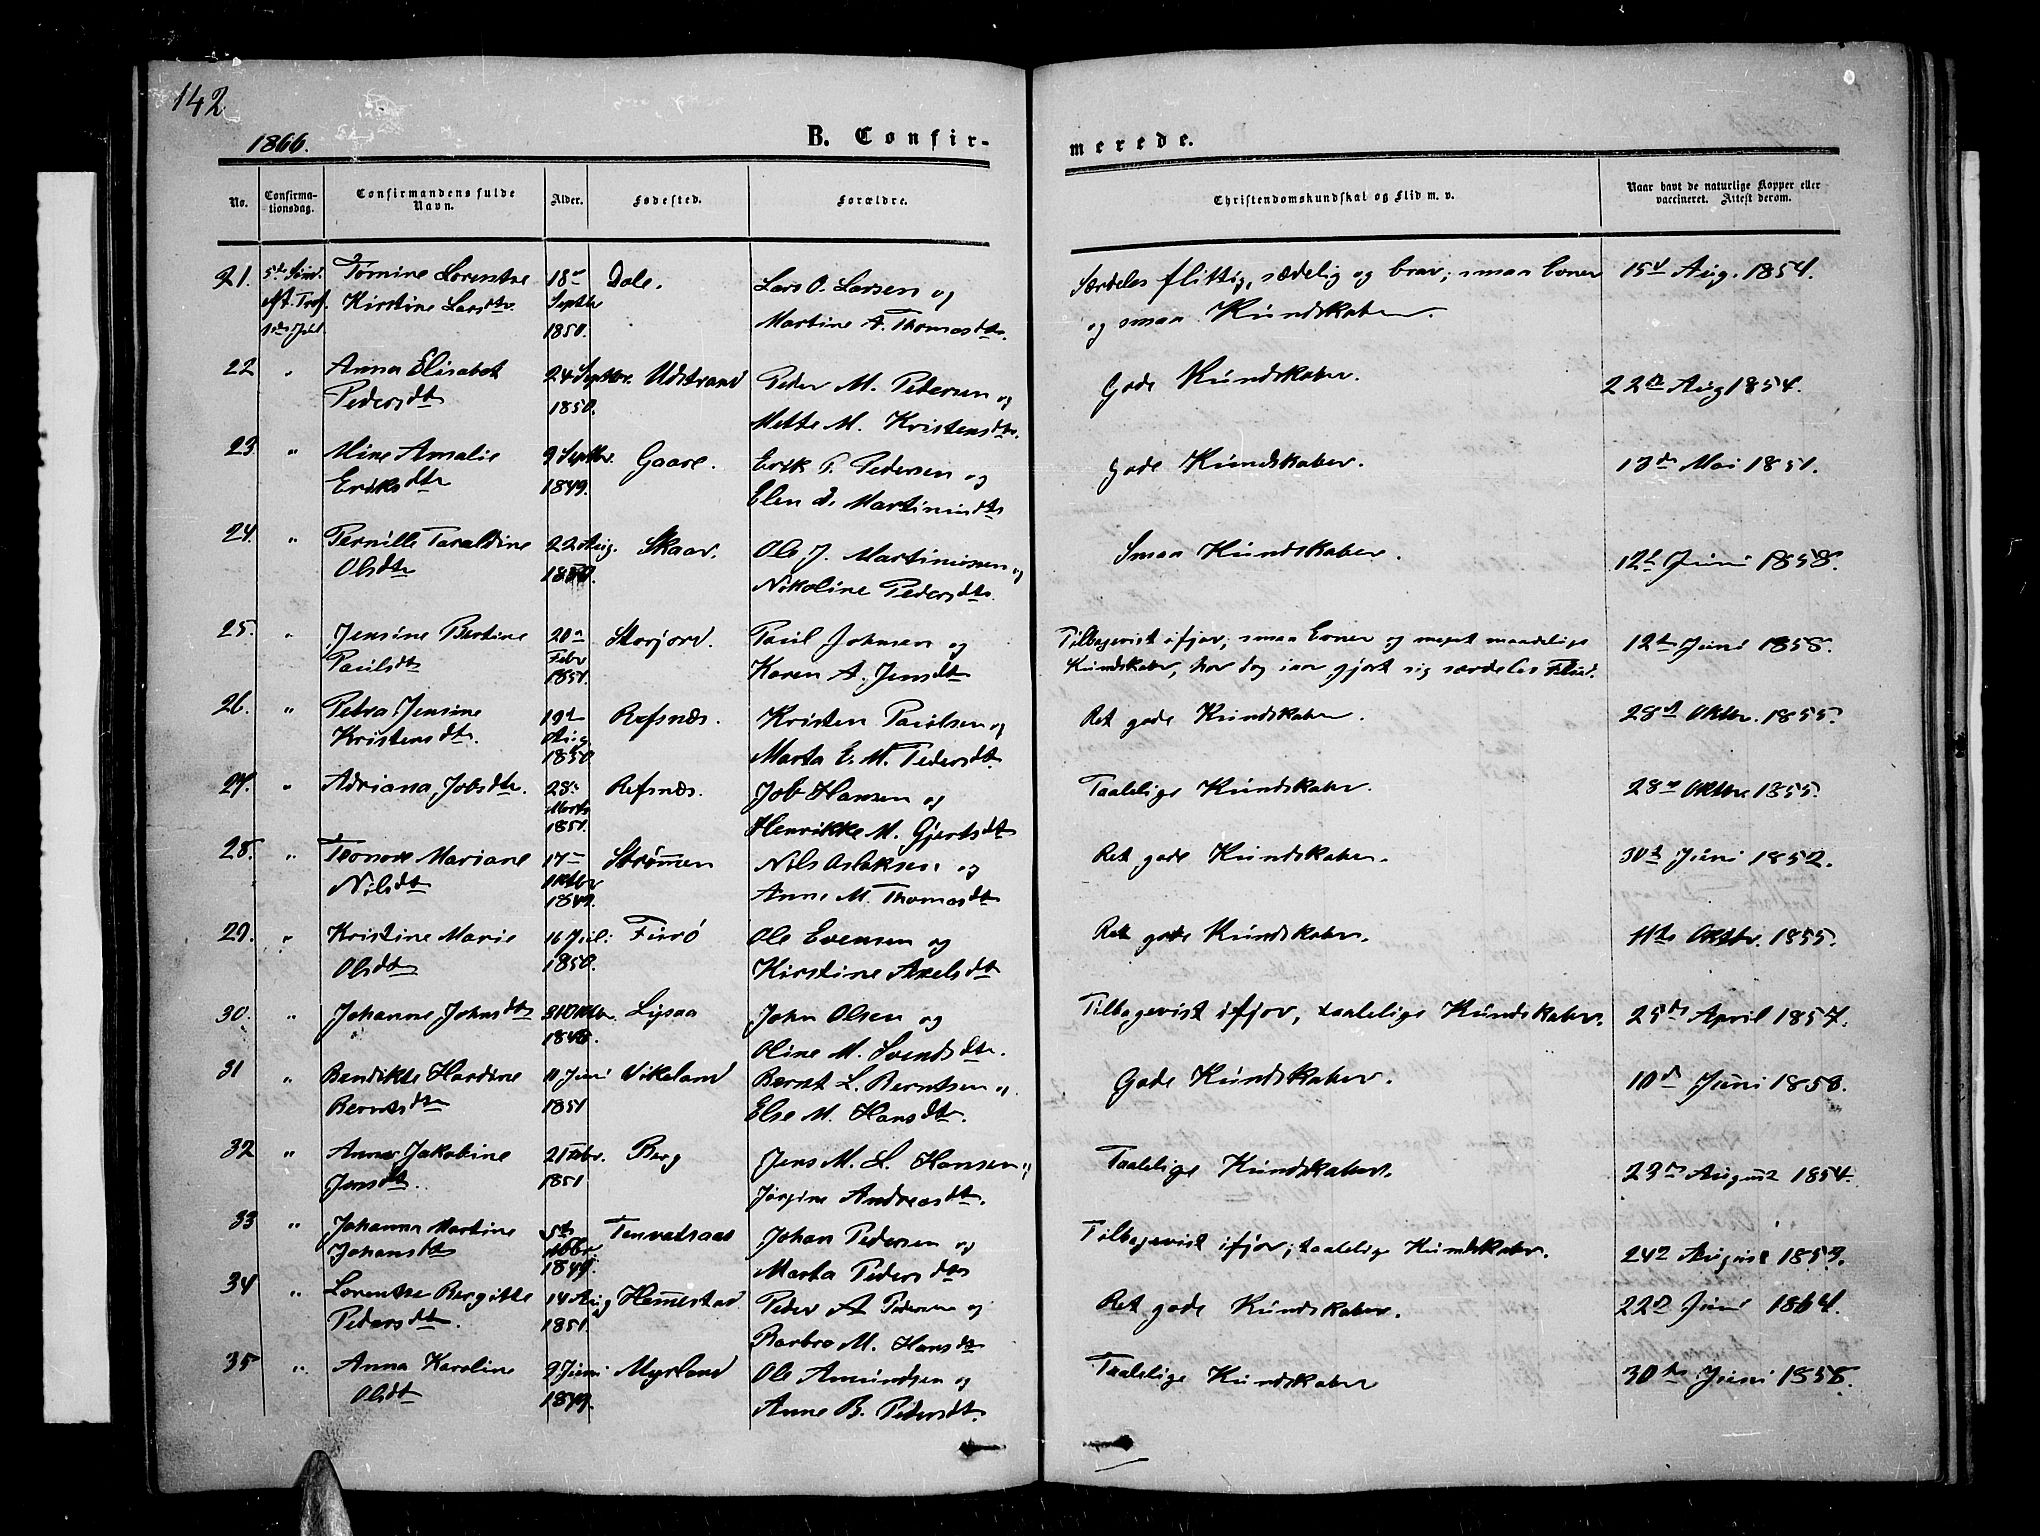 142
1866.
B. Confir-
merede.
No.
Confirma-
tionsdag.
Confirmandens fulde
Navn.
Alder.
Fødested.
Forældre.
Christendomskundskab og Flid m. v.
Naar havt de naturlige Kopper eller
vaccineret. Attest derom.
21. 5te Sønd. Tomine Lorentse 18de Dale. Lars O. Larsen og Særdeles flittig, sædelig og brav; smaa Evner 15d Aug. 1854.
eft. Tref. Kirstine Larsdtr. Septbr Martine A. Thomasdtr. og smaa Kundskaber.
1ste Jul 1850.
22 " Anna Elisabet 24 Septbr. Udstrand Peder M. Pedersen og Gode Kundskaber. 22de Aug 1854.
Pedersdtr 1850. Mette M. Kristensdtr.
23 " Mine Amalie 9 Septbr. Gaare. Erik P. Pedersen og Gode Kundskaber. 13de Mai 1851.
Eriksdtr 1849. Elen d. Martinusdtr
24. " Pernille Taraldine 22 Aug. Skaar. Ole J. Martinussen og Smaa Kundskaber. 12te Juni 1858.
Olsdtr 1850. Nikoline Pedersdtr.
25. " Jensine Bertine 20de Storjord. Paul Johnsen og Tilbagevist ifjor; smaa Evner og meget maadelige 12te Juni 1858.
Paulsdtr Febr 1851. Karen A. Jensdtr Kundskaber, har dog iaar gjort sig særdeles Flid.
26. " Petra Jensine 19de Refsnæs. Kristen Paulsen og Ret gode Kundskaber. 28de Oktbr. 1855.
Kristensdtr. Aug 1850 Marta E. M. Pedersdtr.
27. " Adriana Jobsdtr. 28de Refsnæs. Job Hansen og Taalelige Kundskaber. 28de Oktbr 1855.
Marts 1851. Henrikke M. Gjertsdtr
28. " Teonore Mariane 17de Strømmen Nils Aslaksen og Ret gode Kundskaber. 30te Juni 1852.
Nilsdtr Oktbr 1849. Anne M. Thomasdtr
29. " Kristine Marie 16 Jul. Furø Ole Evensen og Ret gode Kundskaber. 11te Oktbr. 1855.
Olsdtr 1850. Kirstine Axelsdtr
30. " Johanne Johnsdtr 31 Oktbr. Lysaa John Olsen og Tilbagevist ifjor, taalelige Kundskaber. 25de April 1857.
1848. Oline M. Svendsdtr.
31 " Bendikte Hardine 11 Juni Vikeland Bernt L. Berntsen og Gode Kundskaber. 10de Juni 1858.
Berntsdtr 1851 Else M. Hansdtr.
32 " Anna Jakobine 21 Febr. Berg Jens M. L. Hansen og Taalelige Kundskaber. 23de August 1854.
Jensdtr. 1851 Jørgine Andreasdtr.
33 " Johanna Martine 5te Tenvatsaas Johan Pedersen og Tilbagevist ifjor; taalelige Kundskaber. 24d August 1853.
Johansdtr Novbr. 1849. Marta Pedersdtr
34 " Lorentse Bergitte 14 Aug Hemmestad Peder A Pedersen og Ret gode Kundskaber. 22de Juni 1864.
Pedersdtr. 1851. Barbro M. Hansdtr
35 " Anna Karoline 9 Juni Myrland Ole Amundsen og Taalelige Kundskaber 30te Juni 1858.
Olsdtr 1849. Anne B. Pedersdtr.